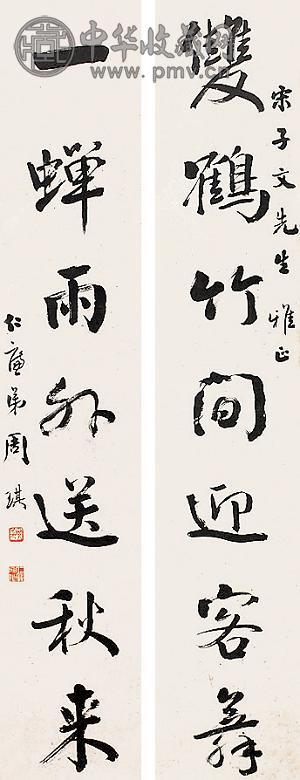 中华收藏网
www.pmv.cn
宋子文先生雅正
雙鶴竹間迎客舞
一蝉雨外送秋来
仁庵弟周琪